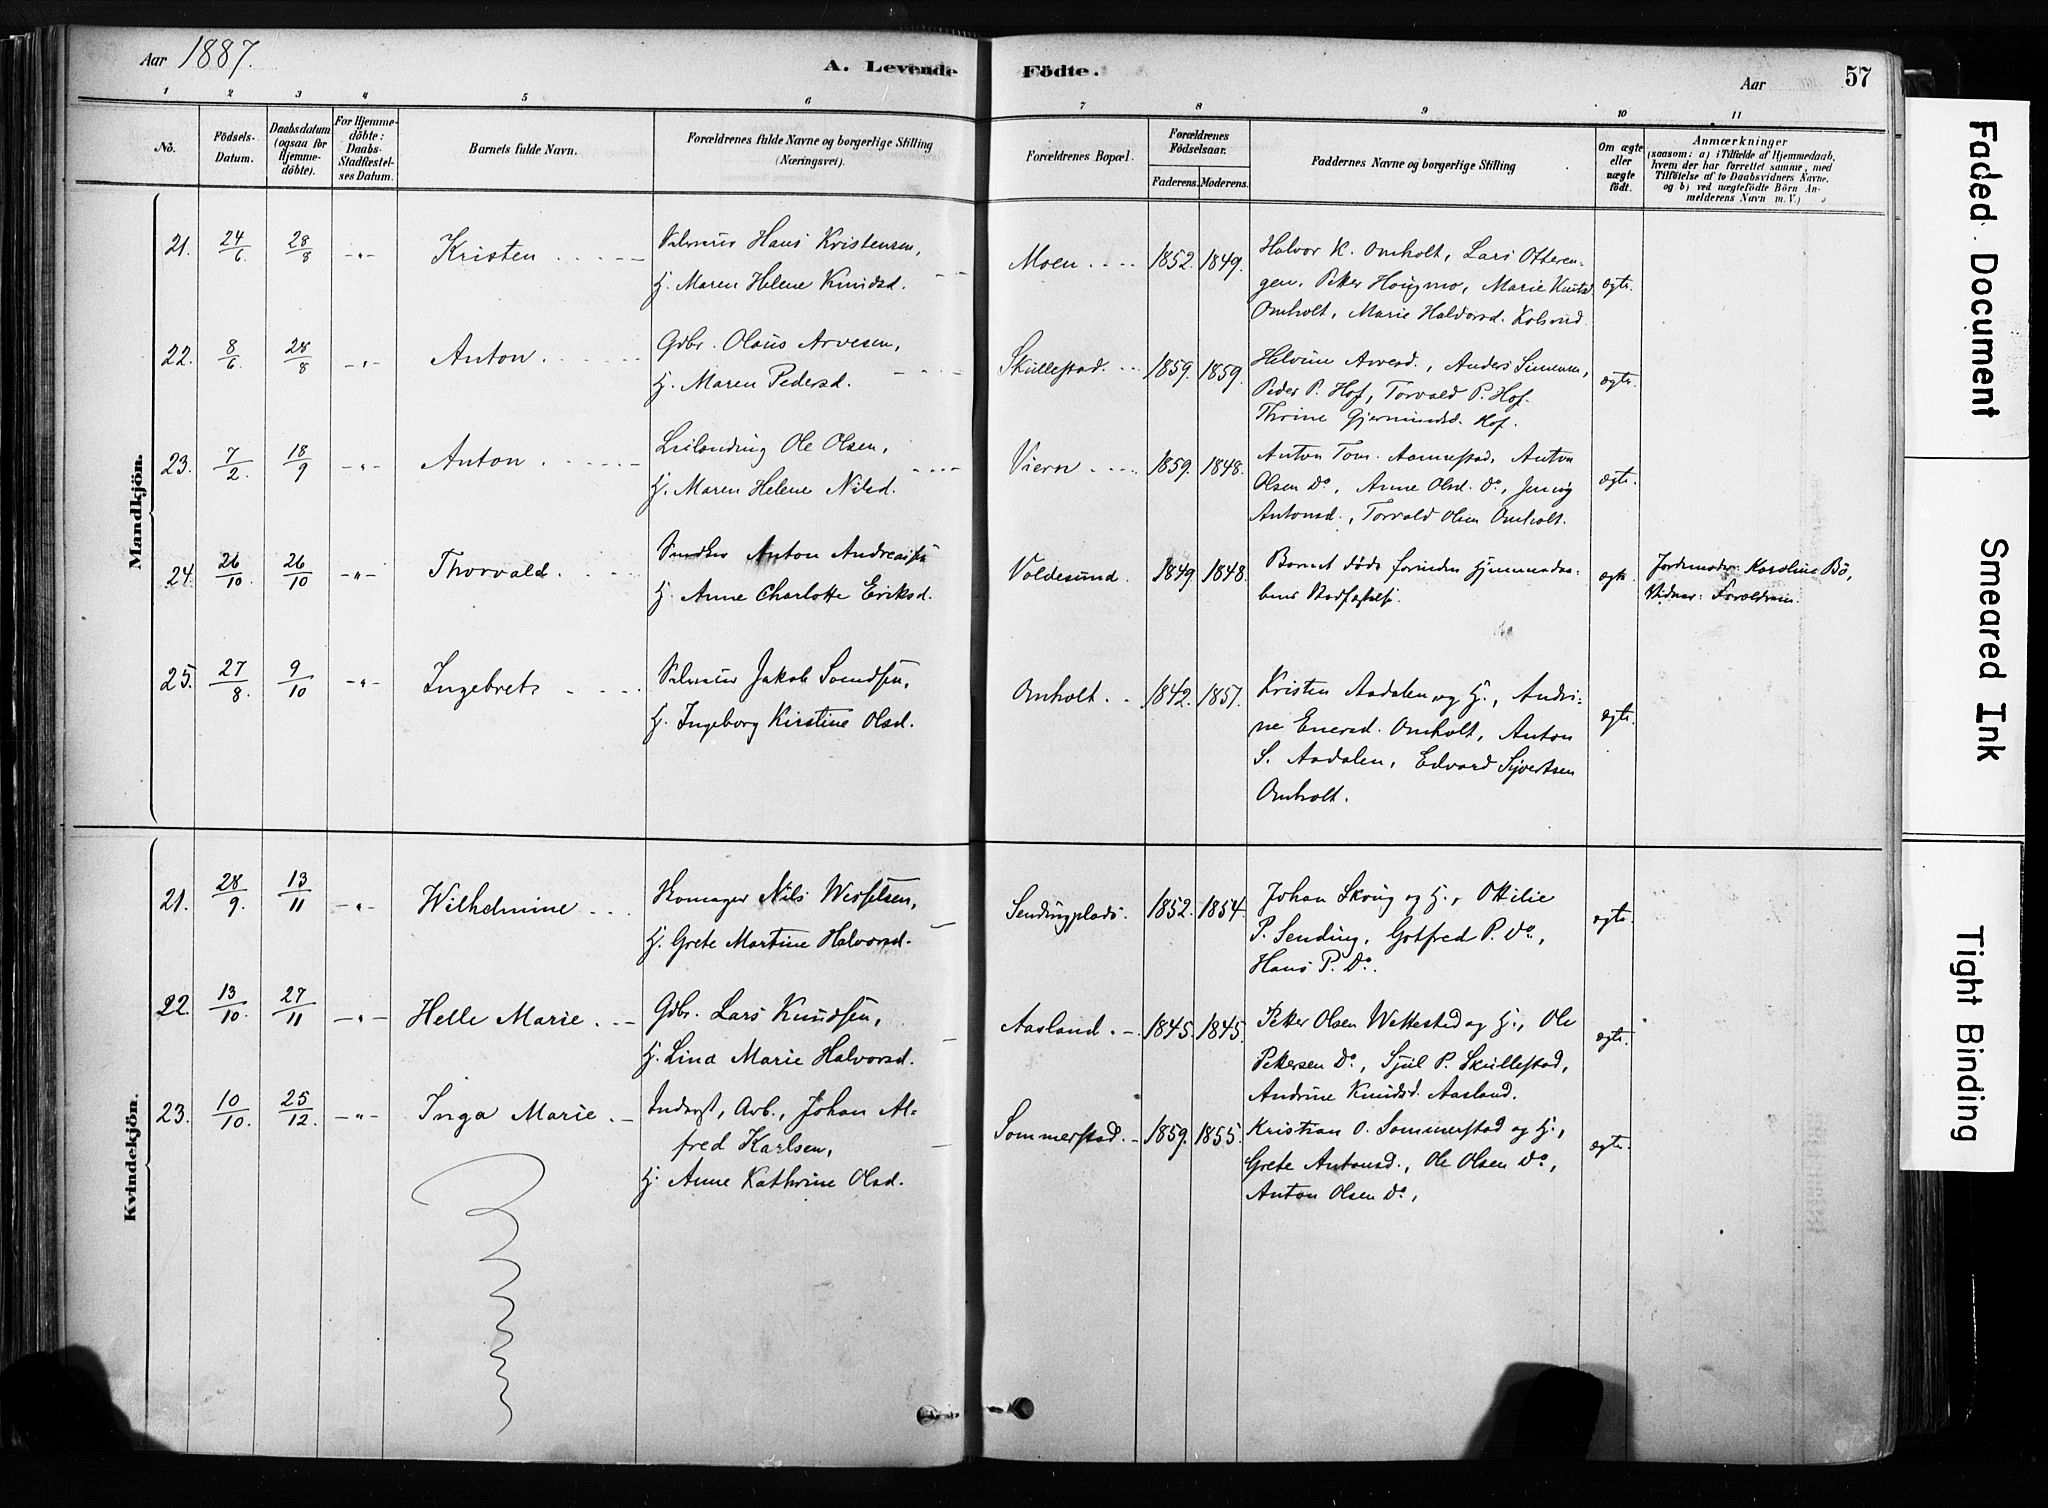 Aar 1887.
A. Levende Födte.
Aar
57
1 2 3 4 5 6 7 8 9 10 11
No.
Födsels-Datum.
Daabsdatum (ogsaa for Hjemmedöbte).
For Hjemmedöbte: Daabs-Stadfæstelses Datum.
Barnets fulde Navn.
Forældrenes fulde Navne og borgerlige Stilling (Næringsvei).
Forældrenes Bopæl.
Forældrenes Födselsaar.
Faderens. Moderens.
Faddernes Navne og borgerlige Stilling
Om ægte eller uægte födt.
Anmærkninger
(saasom: a) i Tilfælde af Hjemmedaab,
hvem der har forrettet samme, med
Tilföielse af to Daabsvidners Navne.
og b) ved uægtefödte Börn Anmelderens Navn m. V.)
Mandkjön.
21. 24/6 28/8 -"- Kristen
Hans Kristensen,
Hj. Maren Helene Knudsd.
Moen 1852. 1849.
Halvor K. Omholt, Lars Otteren-
gen, Peter Hougmo, Marie Knutsd.
Omholt, Marie Halvorsd. Kolsrud
ægte.
22. 8/6 28/8 -"- Anton.
Gdbr. Olaus Arvesen,
Hj. Maren Pedersd.
Skullestad. 1859. 1859.
Helvine Arvesd., Anders Simensen,
Peder P. Hof, Torvald P. Hof.
Thrine Gjermundsd. Hof.
ægte.
23. 7/2 18/9 -"- Anton.
Leilending Ole Olsen,
Hj. Maren Helene Nilsd.
Viern 1859. 1848.
Anton Tom. Aamestad, Anton
Olsen Do, Anne Olsd. Do,
Antonsd., Torvald Olsen Omholt.
ægte.
24. 26/10. 26/10 -"- Thorvald.
Anton Andreas
Hj. Anne Charlotte Eriksd.
Voldesund. 1849 1848.
Barnet døde forinden Hjemmedaa-
bens Stadfæstelse.
ægte.
Jordemoder Karoline Bö,
Vidner: Forældrene.
25. 27/8. 9/10 -"- Ingebret
Jakob Svendsen,
Hj. Ingeborg Kirstine Olsd.
Omholt. 1842. 1851.
Kristen Aadalen og Hj., Andri-
ne Enersd. Omholt, Anton
S. Aadalen, Edvard Syvertsen
Omholt.
ægte.
Kvindekjön.
21. 28/9. 13/11 -"- Wilhelmine
Skomager Nils Wesselsen,
Hj. Grete Martine Halvorsd.
Sendingplads. 1852. 1854.
Johan Skoug og Hj., Ottilie
P. Sending, Gotfred P. Do,
Hans P. Do.
ægte.
22. 13/10. 27/11 -"- Helle Marie
Gdbr. Lars Knudsen,
Hj. Lina Marie Halvorsd.
Aasland. 1845. 1845.
Peter Olsen Wettestad og Hj., Ole
Petersen Do, Sjul P. Skullestad,
Andrine Knudsd. Aasland.
ægte.
23. 10/10. 25/12. -"- Inga Marie
Inderst, Arb., Johan Al-
fred Karlsen,
Hj. Anne Kathrine Olsd.
Sommerstad. 1859. 1855.
Kristian O. Sommerstad og Hj.,
Grete Antonsd., Ole Olsen Do,
Anton Olsen Do,
ægte.
Faded Document
Smeared Ink
Tight Binding